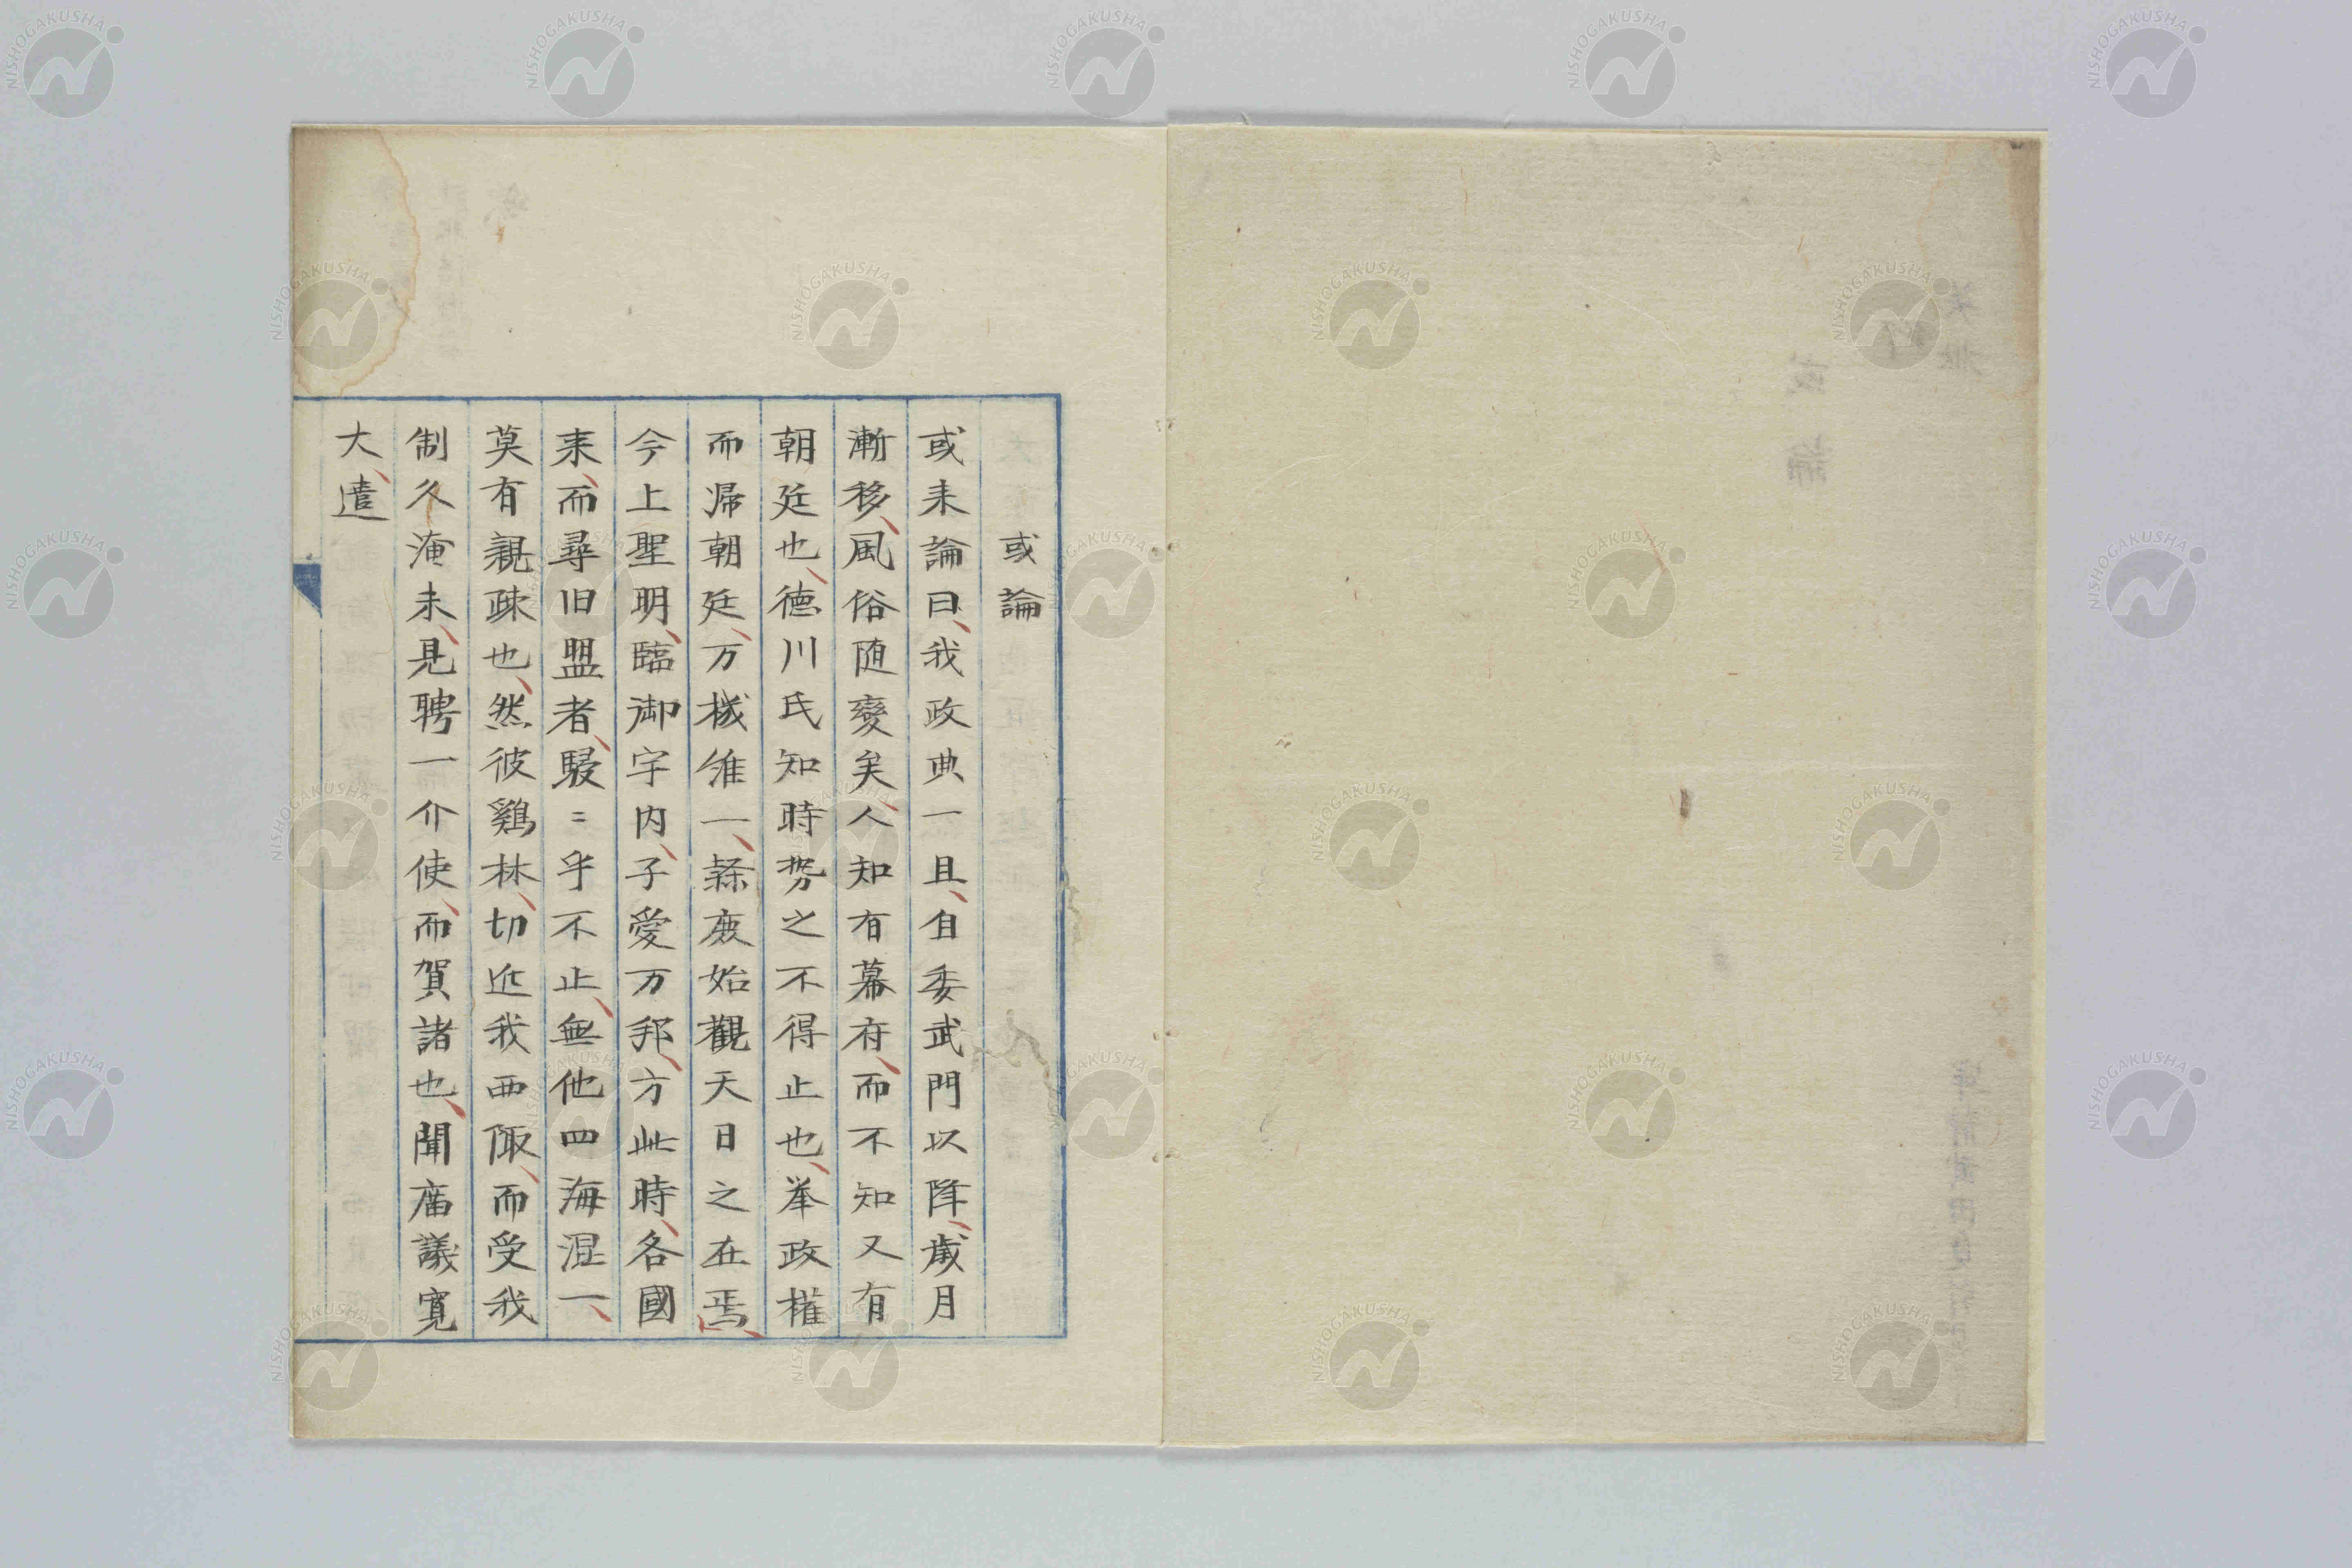 或論
或来論曰、我政典一且、自委武門以降、歳月
漸移、風俗随變矣、人知有幕府、而不知又有
朝廷也、徳川氏知時势之不得止也、挙政權
而帰朝廷、万機維一、繇庻始觀天日之在焉、
今上聖明、臨御宇内、子愛万邦、方此時、各國
来、而尋旧盟者、駸〻乎不止、無他四海混一、
莫有親疎也、然彼鷄林、切近我西陬、而受我
制久淹未、見聘一介使、而賀諸也、聞庿議寛
大、遣
NISHOGAKUSHA